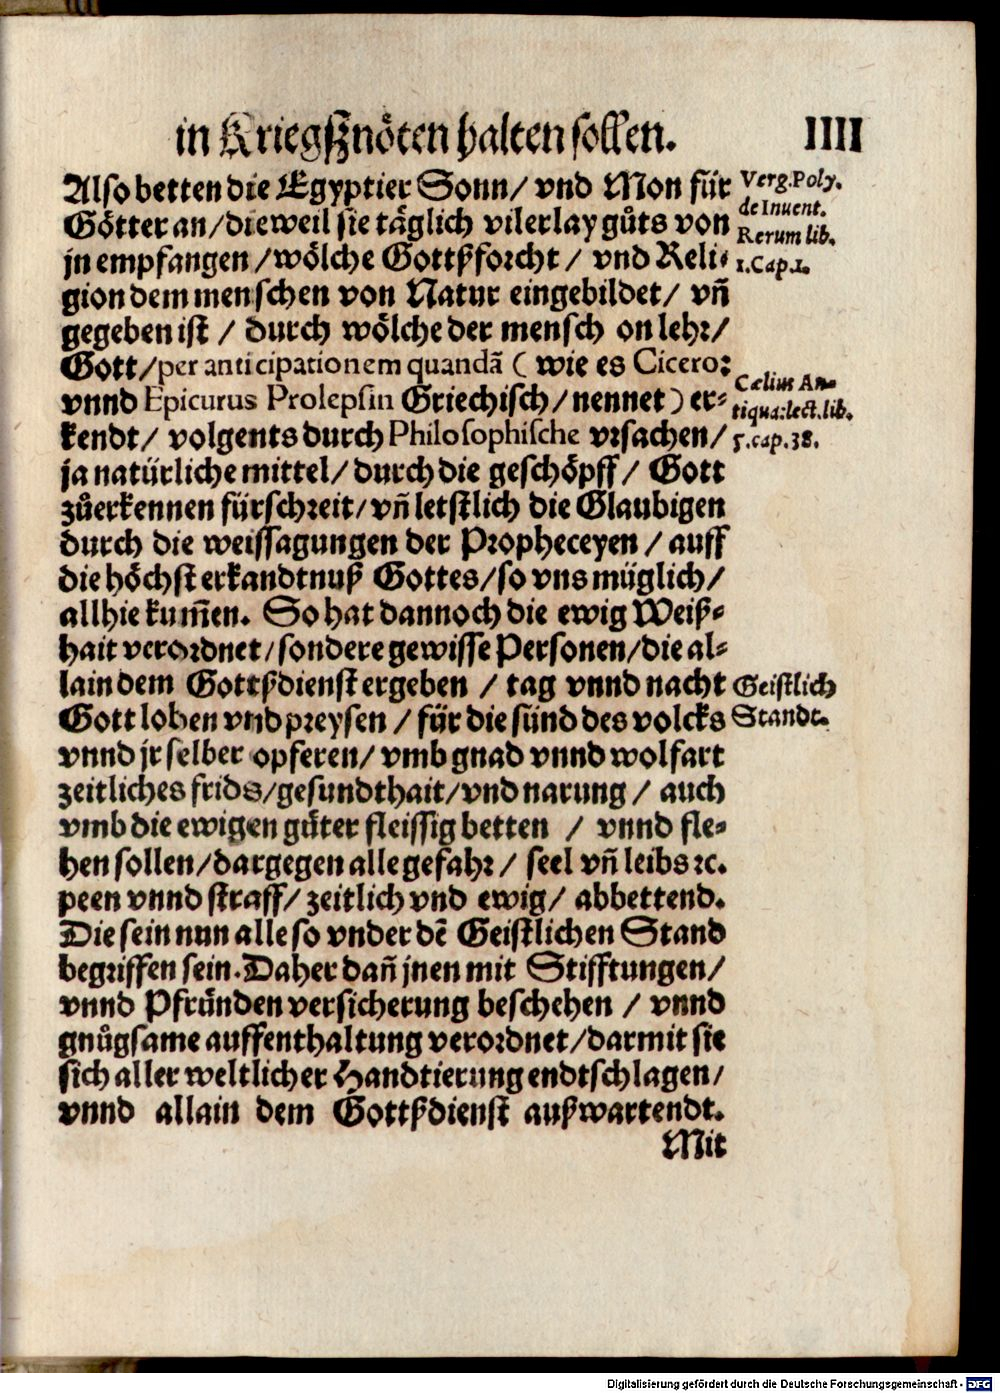 in Kriegßnöten halten sollen. IIII
Also betten die Egyptier Sonn/ vnd Mon für
Götter an/dieweil sie täglich vilerlay gůts von
jn empfangen/wölche Gottßforcht/ vnd Reli-
gion dem menschen von Natur eingebildet/ vñ
gegeben ist/ durch wölche der mensch on lehr/
Gott/per anticipationem quandã (wie es Cicero:
vnnd Epicurus Prolepsin Griechisch/nennet) er-
kendt/ volgents durch Philosophische vrsachen/
ja natürliche mittel/durch die geschöpff/ Gott
zůerkennen fürschreit/vñ letstlich die Glaubigen
durch die weissagungen der Propheceyen/auff
die höchst erkandtnuß Gottes/so vns müglich/
allhie kum̃en. So hat dannoch die ewig Weiß-
hait verordnet/sondere gewisse Personen/die al-
lain dem Gottßdienst ergeben/ tag vnnd nacht
Gott loben vnd preysen/für die sünd des volcks
vnnd jr selber opferen/vmb gnad vnnd wolfart
zeitliches frids/gesundthait/vnd narung/ auch
vmb die ewigen güter fleissig betten/ vnnd fle-
hen sollen/dargegen alle gefahr/ seel vñ leibs ꝛc.
peen vnnd straff/zeitlich vnd ewig/ abbettend.
Die sein nun alle so vnder dẽ Geistlichen Stand
begriffen sein. Daher dañ jnen mit Stifftungen/
vnnd Pfründen versicherung beschehen/ vnnd
gnůgsame auffenthaltung verordnet/darmit sie
sich aller weltlicher Handtierung endtschlagen/
vnnd allain dem Gottßdienst außwartendt.
Mit
Verg. Poly.
de Inuent.
Rerum lib.
1. Cap. 1.
Cælius An-
tiqua: lect. lib.
5. cap. 38.
Geistlich
Standt.
Digitalisierung gefördert durch die Deutsche Forschungsgemeinschaft - DFG